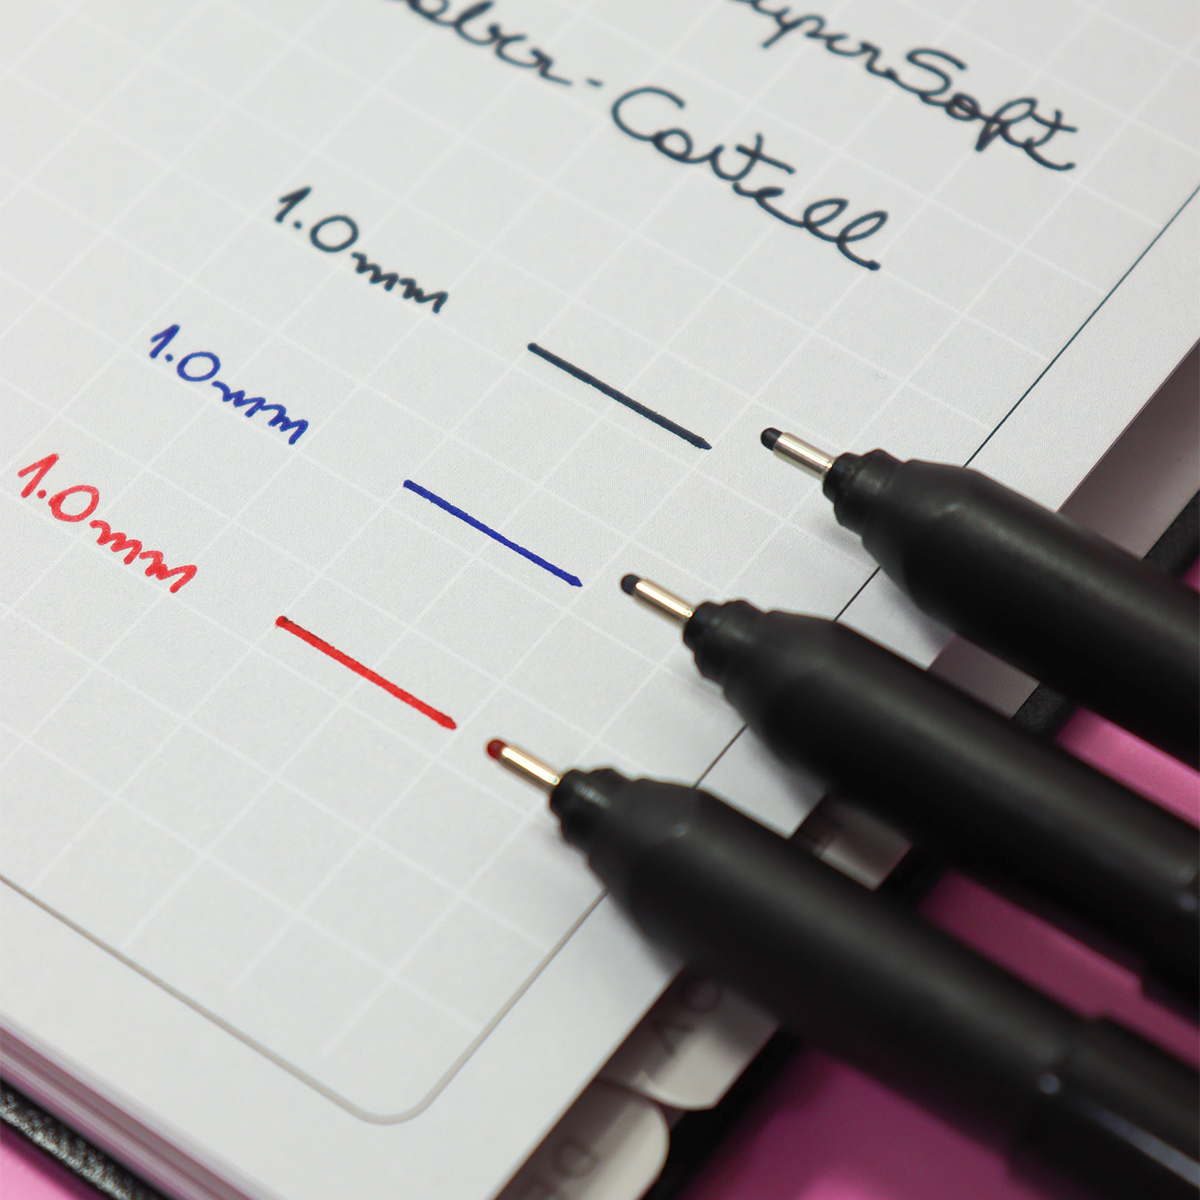 SuperSoft
Faber-Castell
1.0mm
1.0mm
1.0mm